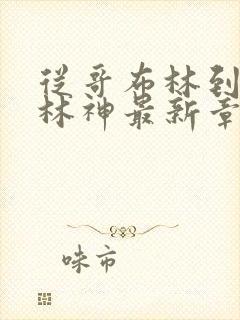 從哥布林到
林神最新章
咪市